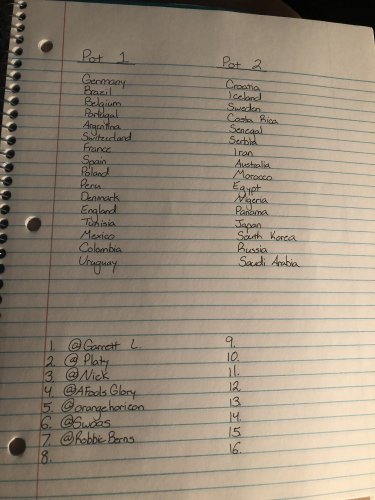 Pot 1
Germany
Brazil
Belgium
Portugal
Argentina
Switzerland
France
Spain
Poland
Peru
Denmark
England
Tunisia
Mexico
Colombia
Uruguay
Pot 2
Croatia
Iceland
Sweden
Costa Rica
Senegal
Serbia
Iran
Australia
Morocco
Egypt
Nigeria
Panama
Japan
South Korea
Russia
Saudi Arabia
1. @Garrett L.
2. @Platy
3. @Nick
4. @AFools Glory
5. @orangehoricon
6. @Swoas
7. @Robbie Berns
8.
9.
10.
11.
12
13
14.
15
16.